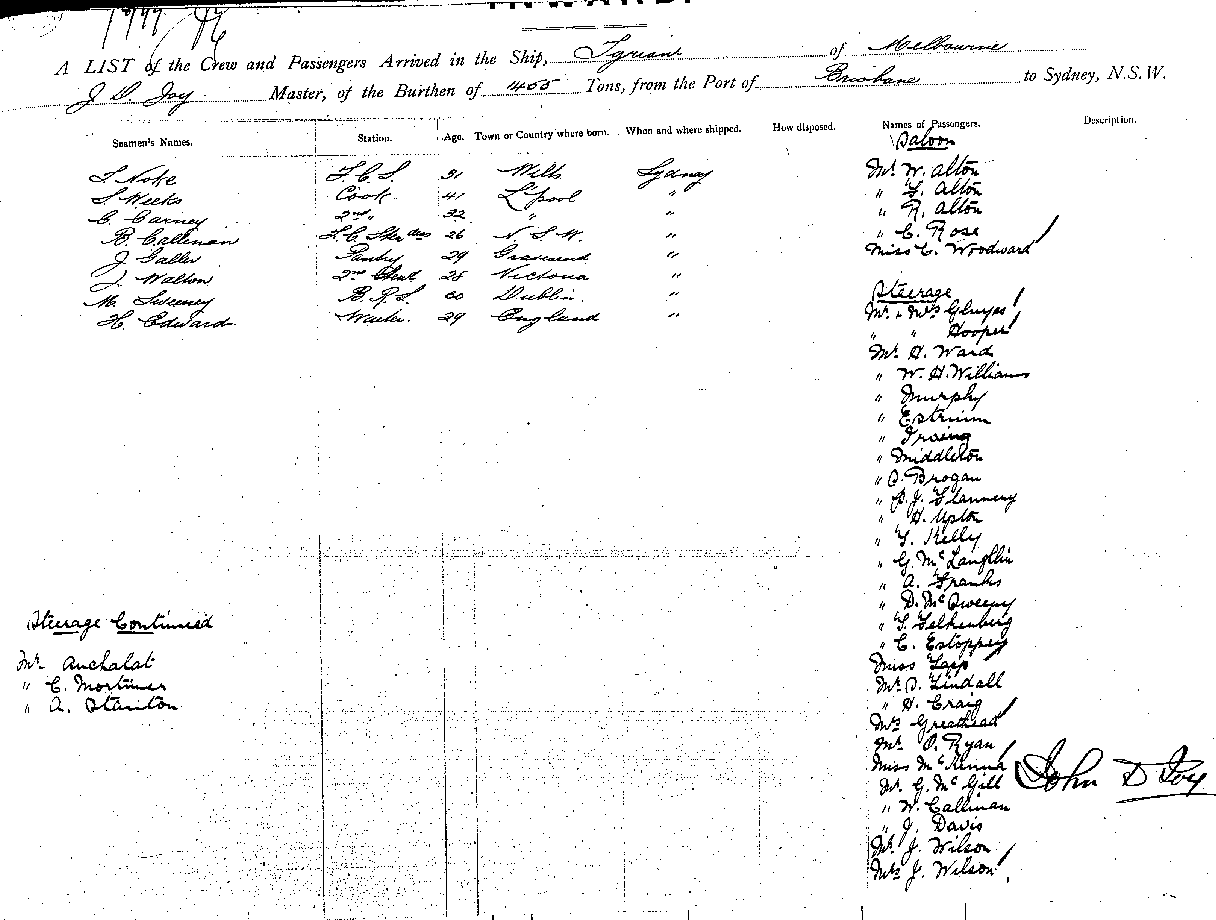 INWARD.
A LIST of the Crew and Passengers Arrived in the Ship, Tyrian of Melbourne
J. D. Joy Master, of the Burthen of 1455 Tons, from the Port of Brisbane to Sydney, N.S.W.
Seamen's Names. Station. Age. Town or Country where born. When and where shipped. How disposed. Names of Passengers. Description.
Saloon
S. Noke F.C.S. 31 Wilts Sydney Mr. W. Alton
S. Weeks Cook 41 L'pool " " F. Alton
C. Carney 2nd " 32 " " " R. Alton
B. Callinan F.C. Stewdess 26 N.S.W. " " C. Rose
J. Galler Pantry 29 Gravesend " Miss C. Woodward
J. Walton 2nd Stwd 25 Victoria "
M. Sweeney B.R.S. 20 Dublin " Steerage
H. Edward Waiter 29 England " Mr. & Mrs
" " Hooper
Mr. H. Ward
" W. H. Williams
" Murphy
"
" Irving
" Middleton
" Brogan
" P. J. Flannery
" H. Upton
" Kelly
" G. McLaughlin
" A. Franks
" D. McSweeny
" Felkenberg
" C. Estoppey
Miss Lapp
Mr. Lindall
" H. Craig
Mrs Greathead
Mr. P. Ryan
Miss McKenna
Mr. G. McGill
" W. Callinan
" J. Davis
Mr. J. Wilson
Mrs J. Wilson
John D Joy
Steerage Continued
Mr. Auchalat
" C. Mortimer
" A. Stanton